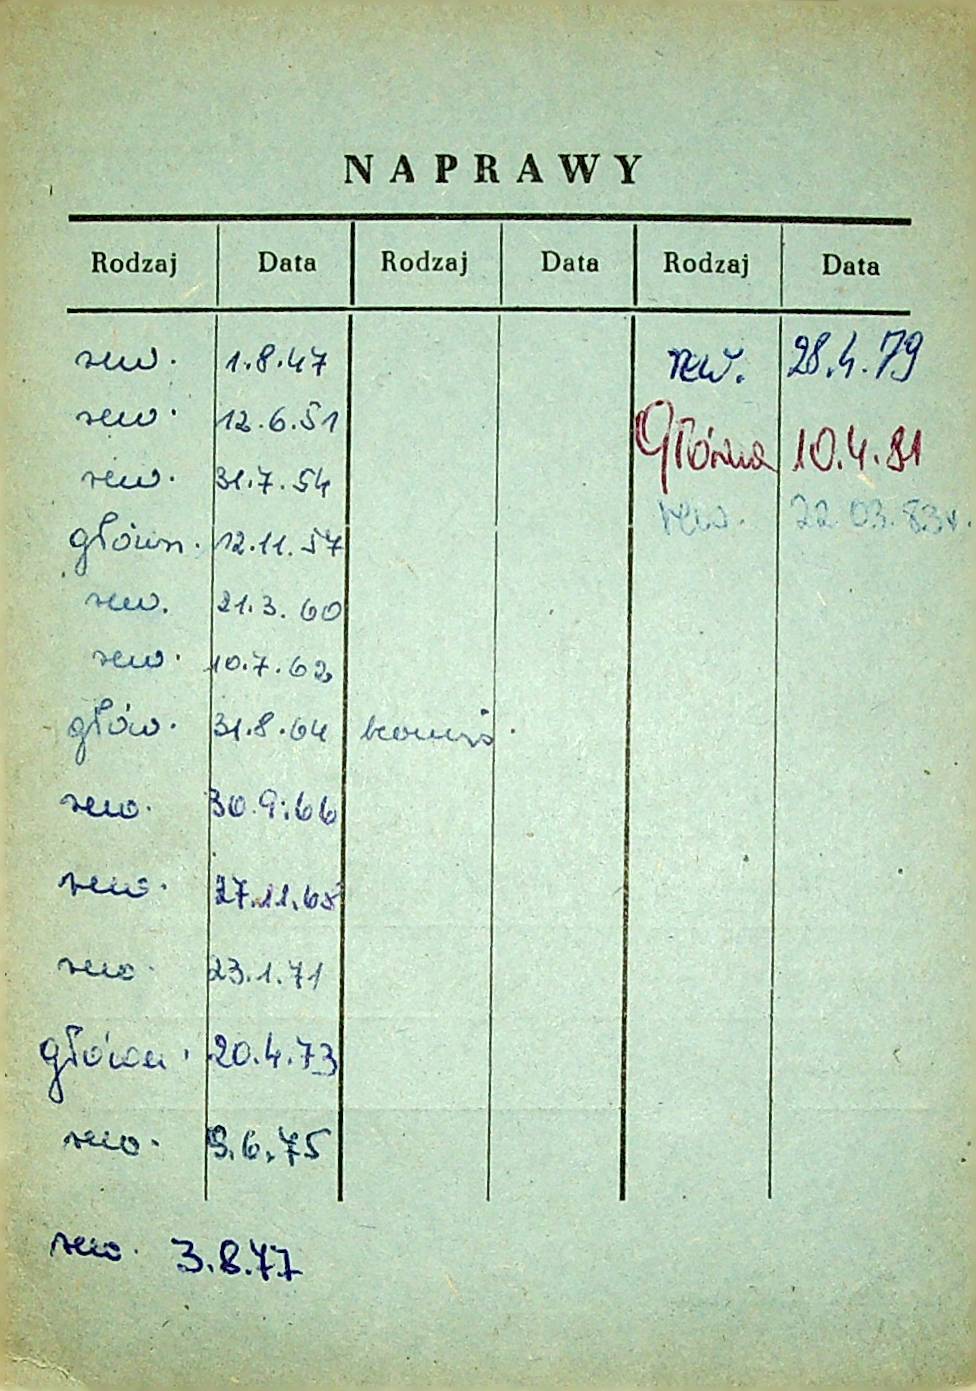 NAPRAWY
Rodzaj Data Rodzaj Data Rodzaj Data
rew. 1.8.47 rew. 28.4.79
rew. 12.6.51 Główna 10.4.81
rew. 31.7.54 rew. 22.03.83r.
główn. 12.11.57
rew. 21.3.60
rew. 10.7.62
głów. 31.8.64
rew. 30.9.66
rew. 27.11.68
rew. 23.1.71
główn. 20.4.73
rew. 9.6.75
rew. 3.8.77